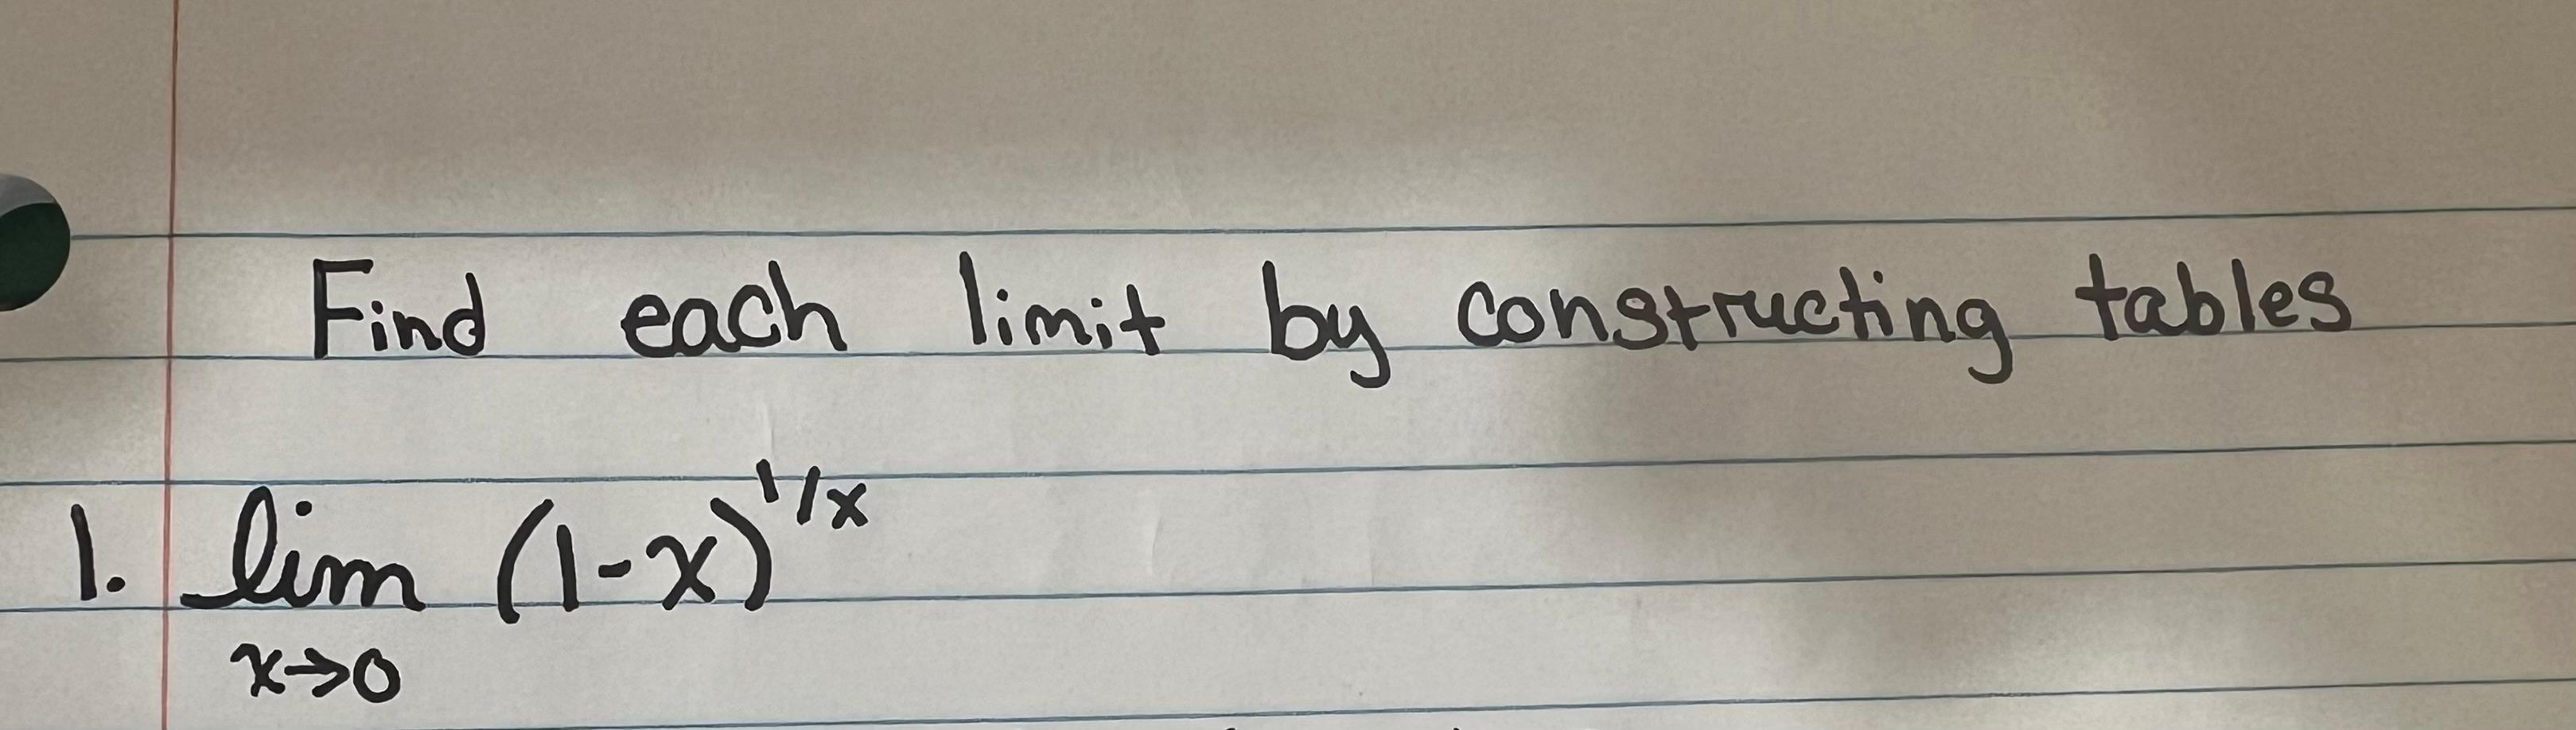 Find each limit by constructing tables
1. lim (1-x)^1/x
x→0